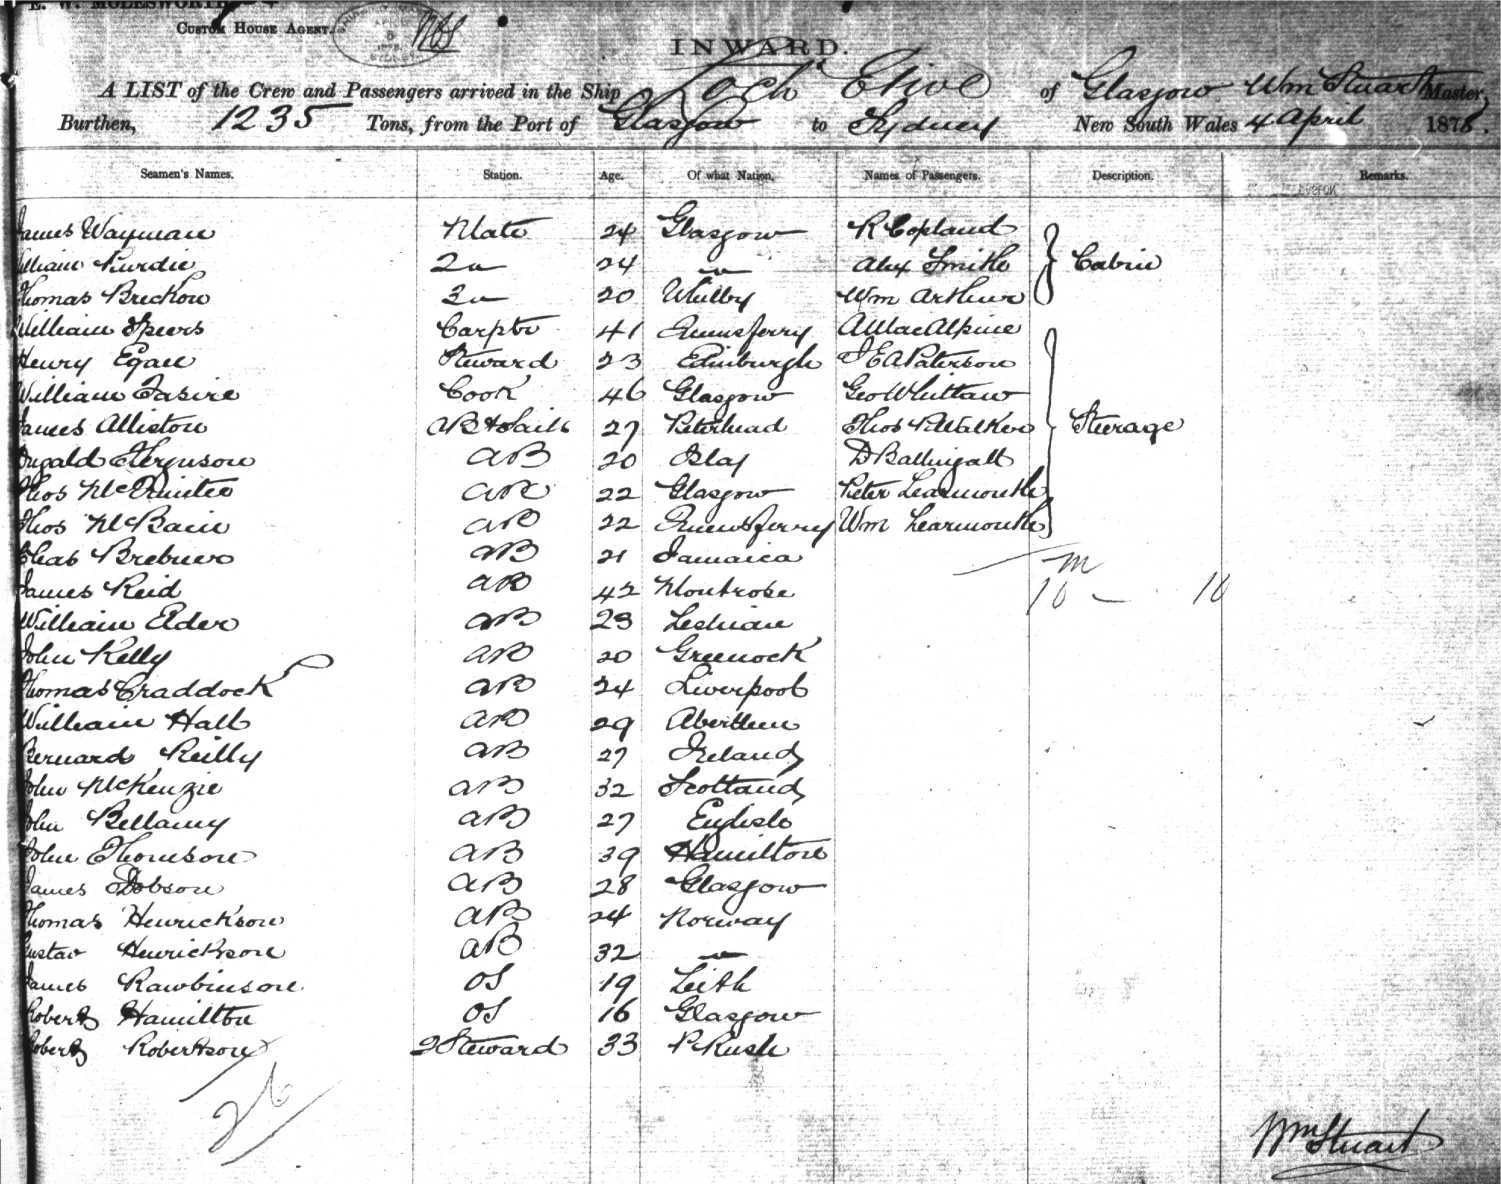 E. W. MOLESWORTH
CUSTOM HOUSE AGENT.
INWARD.
A LIST of the Crew and Passengers arrived in the Ship Loch Etive of Glasgow Wm Stuart Master,
Burthen, 1235 Tons, from the Port of Glasgow to Sydney New South Wales 4 April 1878.
Seamen's Names. Station. Age. Of what Nation. Names of Passengers. Description. Remarks.
James Wayman Mate 24 Glasgow R Copland
William Purdie 2 " 24 " Alex Smith Cabin
Thomas Breckon 3 " 20 Whitby Wm Arthur
William Speers Carptr 41 Queensferry A MacAlpine
Henry Egan Steward 23 Edinburgh J E A Paterson
William Cook 46 Glasgow Geo Whittaw
James Alliston AB & Sails 27 Peterhead Thos Walker Steerage
Dugald Ferguson AB 20 Islay D Ballingall
Thos AB 22 Glasgow Peter Learmonth
Thos McBain AB 22 Queensferry Wm Learmonth
Chas Brebner AB 21 Jamaica
James Reid AB 42 Montrose
10 10
William Elder AB 23
John Kelly AB 20 Greenock
Thomas Craddock AB 24 Liverpool
William Hall AB 29 Aberdeen
Bernard Reilly AB 27 Ireland
John McKenzie AB 32 Scotland
John Bellamy AB 27 English
John Thomson AB 39 Hamilton
James Dobson AB 28 Glasgow
Thomas Henrickson AB 24 Norway
Gustav Henrickson AB 32 "
James Rawbinson OS 19 Leith
Robert Hamilton OS 16 Glasgow
Robert Robertson 2 Steward 33
26
Wm Stuart